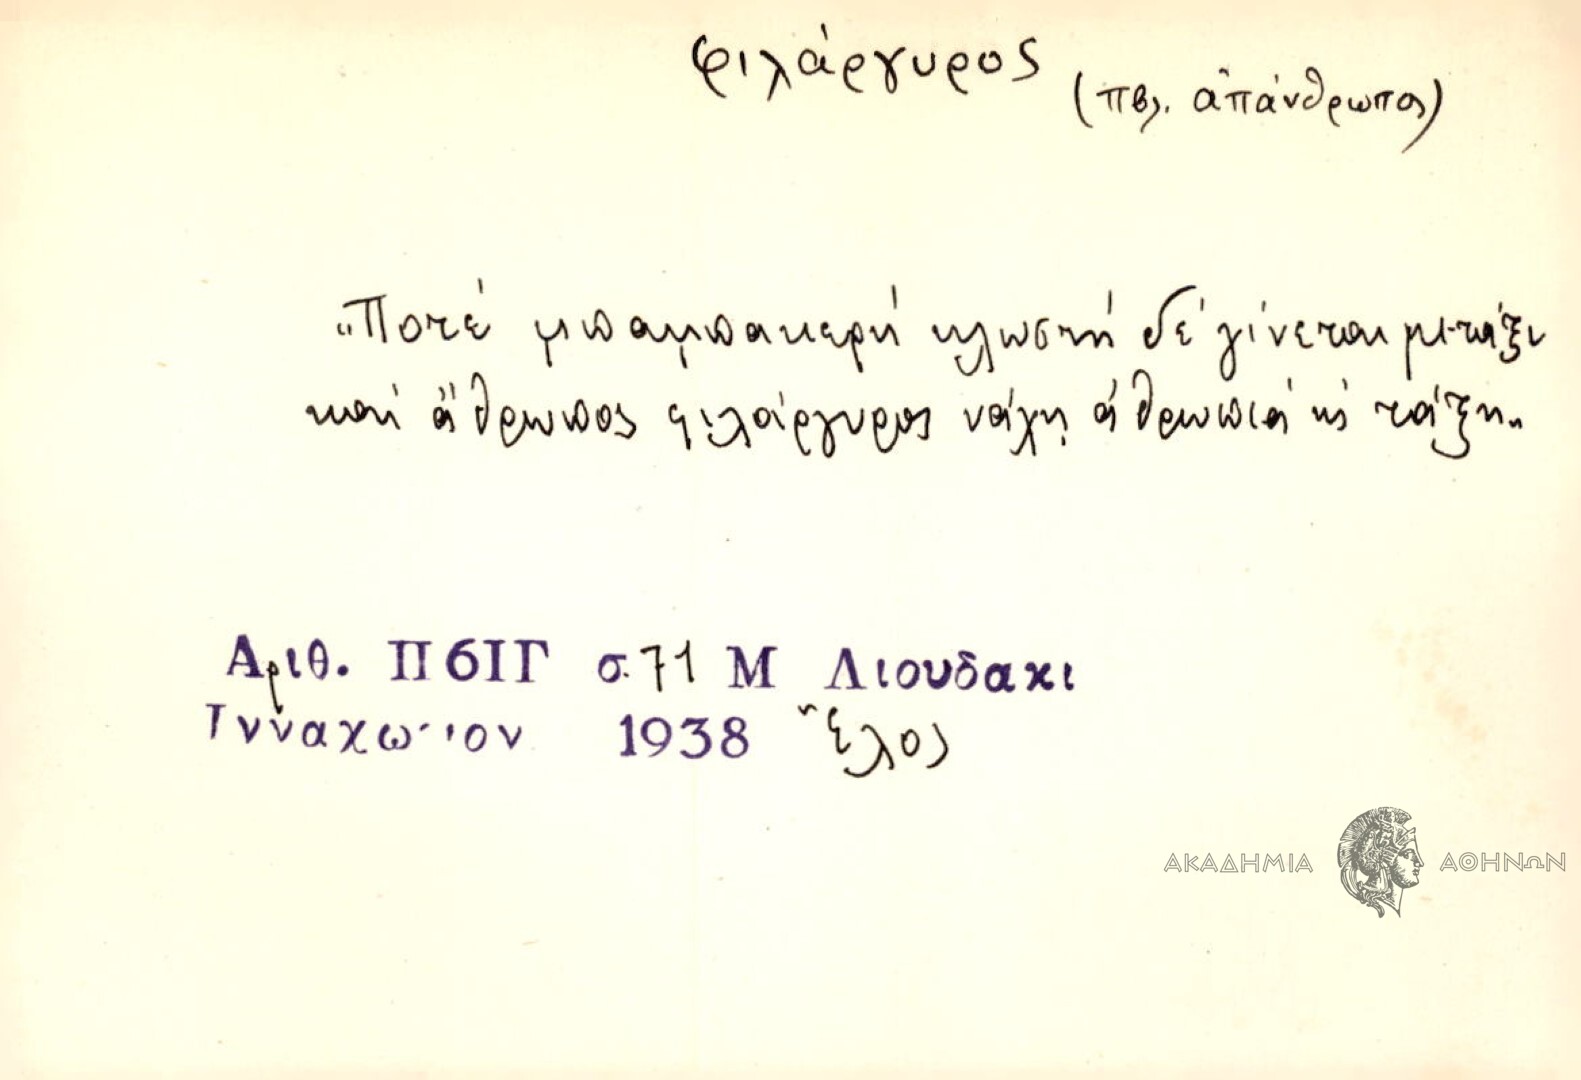 φιλάργυρος
(πβλ. ἀπάνθρωπος)
"Ποτέ μπαμπακερή κλωστή δέ γίνεται μετάξι
καί ἄθρωπος φιλάργυρος νάχῃ ἀθρωπιά κι τάξη"
Αριθ. Π6ΙΓ σ.71 Μ Λιουδακι
1938 Ἕλος
ΑΚΑΔΗΜΙΑ ΑΘΗΝΩΝ